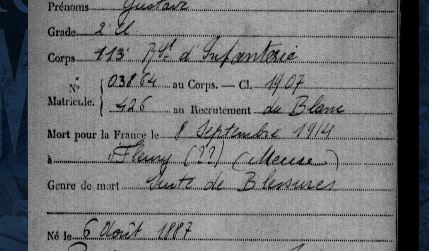 Prénoms Gustave
Grade 2e Cl
Corps 113e Rgt d'Infanterie
N° 03864 au Corps. — Cl. 1907
Matricule. 426 au Recrutement du Blanc
Mort pour la France le 8 Septembre 1914
à Fleury (??) (Meuse)
Genre de mort Suite de Blessures
Né le 6 Août 1887